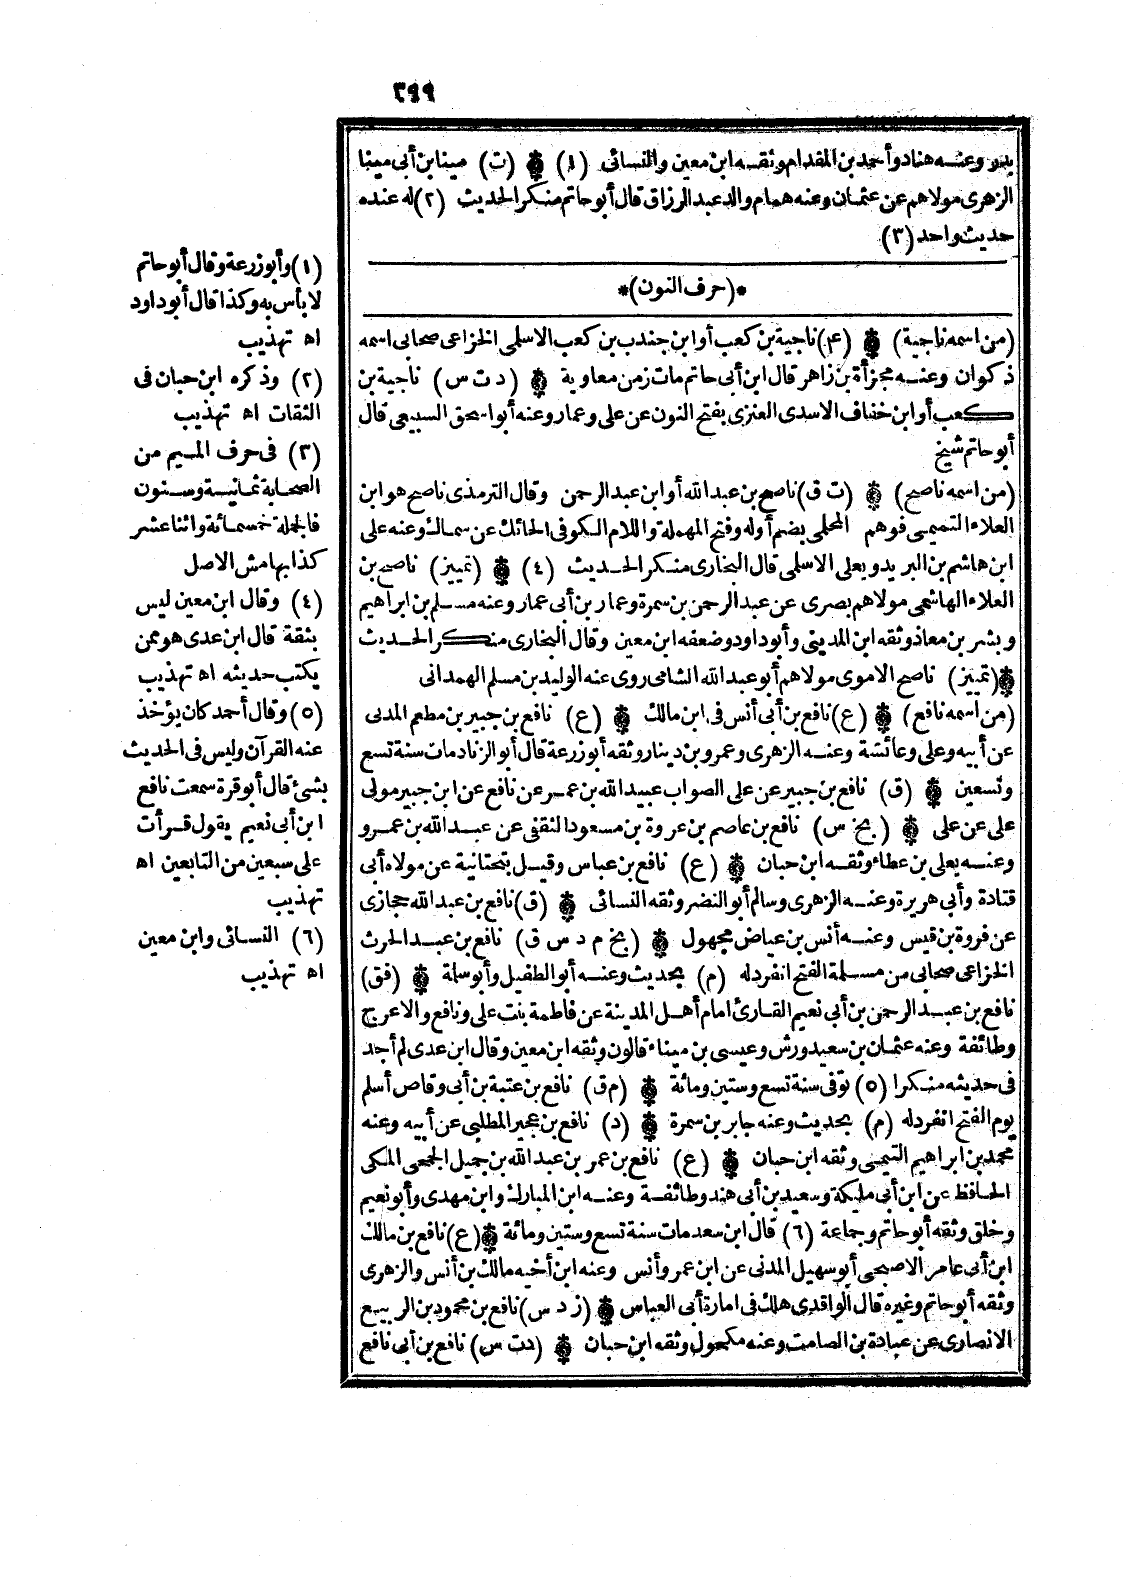 ٣٩٩
وعنه هناد وأحمد بن المقدام وثقه ابن معين والنسائى (١) (ت) مينا بن أبى مينا
الزهرى مولاهم عن عثمان وعنه همام والد عبد الرزاق قال أبو حاتم منكر الحديث (٢) له عنده
حديث واحد (٣)
*(حرف النون)*
(من اسمه ناجية) (ع) ناجية بن كعب أو ابن جندب بن كعب الاسلمى الخزاعى صحابى اسمه
ذكوان وعنه مجزأة بن زاهر قال ابن أبى حاتم مات زمن معاوية (د ت س) ناجية بن
كعب أو ابن خفاف الاسدى العنزى بفتح النون عن على وعمار وعنه أبو اسحق السبيعى قال
أبو حاتم شيخ
(من اسمه ناصح) (ت ق) ناصح بن عبد الله أو ابن عبد الرحمن وقال الترمذى ناصح هو ابن
العلاء التميمى فوهم المحلمى بضم أوله وفتح المهملة واللام الكوفى الحائك عن سماك وعنه على
ابن هاشم بن البريد ويعلى الاسلمى قال البخارى منكر الحديث (٤) (تمييز) ناصح بن
العلاء الهاشمى مولاهم بصرى عن عبد الرحمن بن سمرة وعمار بن أبى عمار وعنه مسلم بن ابراهيم
وبشر بن معاذ وثقه ابن المدينى وأبو داود وضعفه ابن معين وقال البخارى منكر الحديث
(تمييز) ناصح الاموى مولاهم أبو عبد الله الشامى روى عنه الوليد بن مسلم الهمدانى
(من اسمه نافع) (ع) نافع بن أبى أنس فى ابن مالك (ع) نافع بن جبير بن مطعم المدنى
عن أبيه وعلى وعائشة وعنه الزهرى وعمرو بن دينار وثقه أبو زرعة قال أبو الزناد مات سنة تسع
وتسعين (ق) نافع بن جبير عن على الصواب عبيد الله بن عمر عن نافع عن ابن جبير مولى
على عن على (بخ س) نافع بن عاصم بن عروة بن مسعود الثقفى عن عبد الله بن عمرو
وعنه يعلى بن عطاء وثقه ابن حبان (ع) نافع بن عباس وقيل بتحتانية عن مولاه أبى
قتادة وأبى هريرة وعنه الزهرى وسالم أبو النضر وثقه النسائى (ق) نافع بن عبد الله حجازى
عن فروة بن قيس وعنه أنس بن عياض مجهول (بخ م د س ق) نافع بن عبد الحرث
الخزاعى صحابى من مسلمة الفتح انفرد له (م) بحديث وعنه أبو الطفيل وأبو سلمة (فق)
نافع بن عبد الرحمن بن أبى نعيم القارئ امام أهل المدينة عن فاطمة بنت على ونافع والاعرج
وطائفة وعنه عثمان بن سعيد ورش وعيسى بن ميناء قالون وثقه ابن معين وقال ابن عدى لم أجد
فى حديثه منكرا (٥) توفى سنة تسع وستين ومائة (م ق) نافع بن عتبة بن أبى وقاص أسلم
يوم الفتح انفرد له (م) بحديث وعنه جابر بن سمرة (د) نافع بن عجير المطلبى عن أبيه وعنه
محمد بن ابراهيم التيمى وثقه ابن حبان (ع) نافع بن عمر بن عبد الله بن جميل الجمحى المكى
الحافظ عن ابن أبى مليكة وسعيد بن أبى هند وطائفة وعنه ابن المبارك وابن مهدى وأبو نعيم
وخلق وثقه أبو حاتم وجماعة (٦) قال ابن سعد مات سنة تسع وستين ومائة (ع) نافع بن مالك
ابن أبى عامر الاصبحى أبو سهيل المدنى عن ابن عمر وأنس وعنه ابن أخيه مالك بن أنس والزهرى
وثقه أبو حاتم وغيره قال الواقدى هلك فى امارة أبى العباس (ز د س) نافع بن محمود بن الربيع
الانصارى عن عبادة بن الصامت وعنه مكحول وثقه ابن حبان (د ت س) نافع بن أبى نافع
(١) وأبو زرعة وقال أبو حاتم
لا بأس به وكذا قال أبو داود
اه تهذيب
(٢) وذكره ابن حبان فى
الثقات اه تهذيب
(٣) فى حرف الميم من
الصحابة ثمانية وستون
فالجملة خمسمائة واثنا عشر
كذا بهامش الاصل
(٤) وقال ابن معين ليس
بثقة قال ابن عدى هو ممن
يكتب حديثه اه تهذيب
(٥) وقال أحمد كان يؤخذ
عنه القرآن وليس فى الحديث
بشئ قال أبو قرة سمعت نافع
ابن أبى نعيم يقول قرأت
على سبعين من التابعين اه
تهذيب
(٦) النسائى وابن معين
اه تهذيب